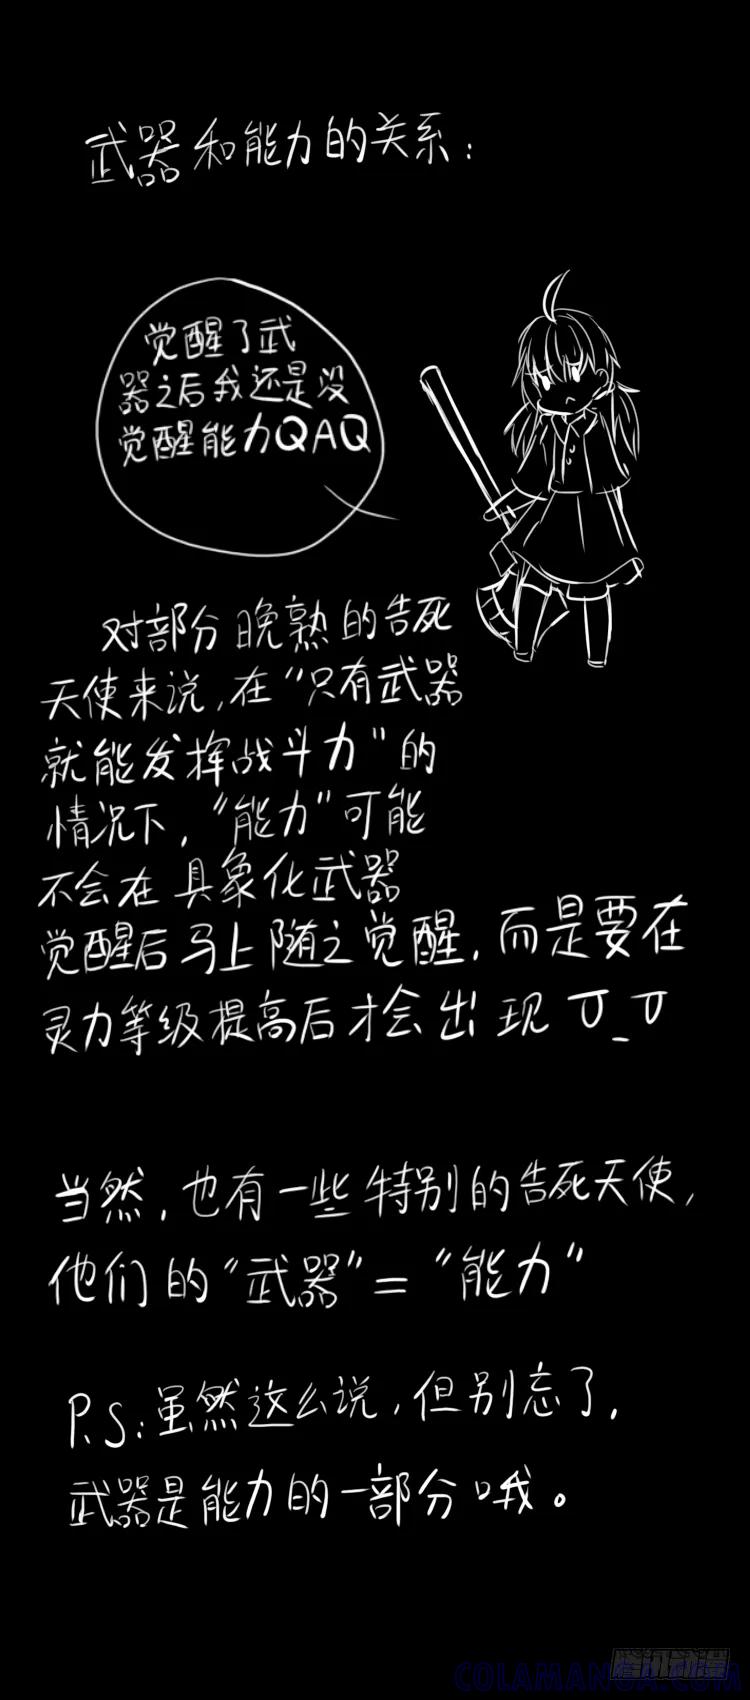 武器和能力的关系：
觉醒了武
器之后我还是没
觉醒能力QAQ
对部分晚熟的告死
天使来说，在“只有武器
就能发挥战斗力”的
情况下，“能力”可能
不会在具象化武器
觉醒后马上随之觉醒，而是要在
灵力等级提高后才会出现T_T
当然，也有一些特别的告死天使，
他们的“武器”=“能力”
P.S：虽然这么说，但别忘了，
武器是能力的一部分哦。
COLAMANGA.COM